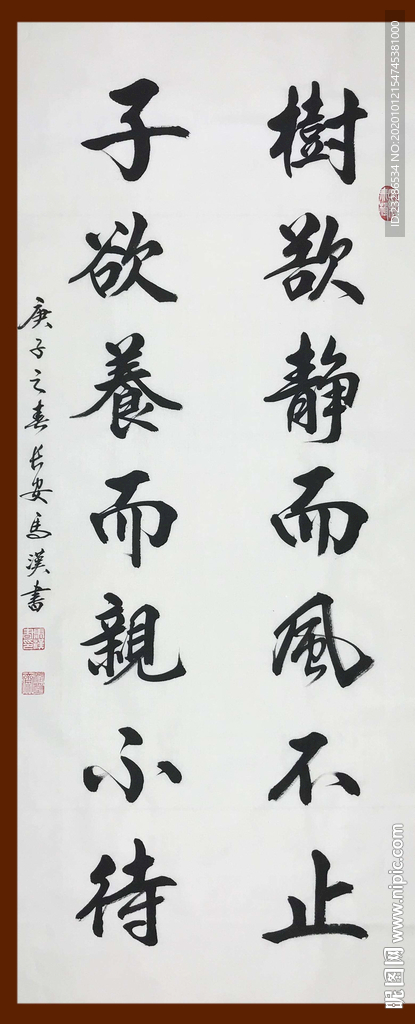 樹欲静而風不止
子欲養而親不待
庚子之春長安馬漢書
ID:25286534 NO:20201012154745381000
昵图网 www.nipic.com